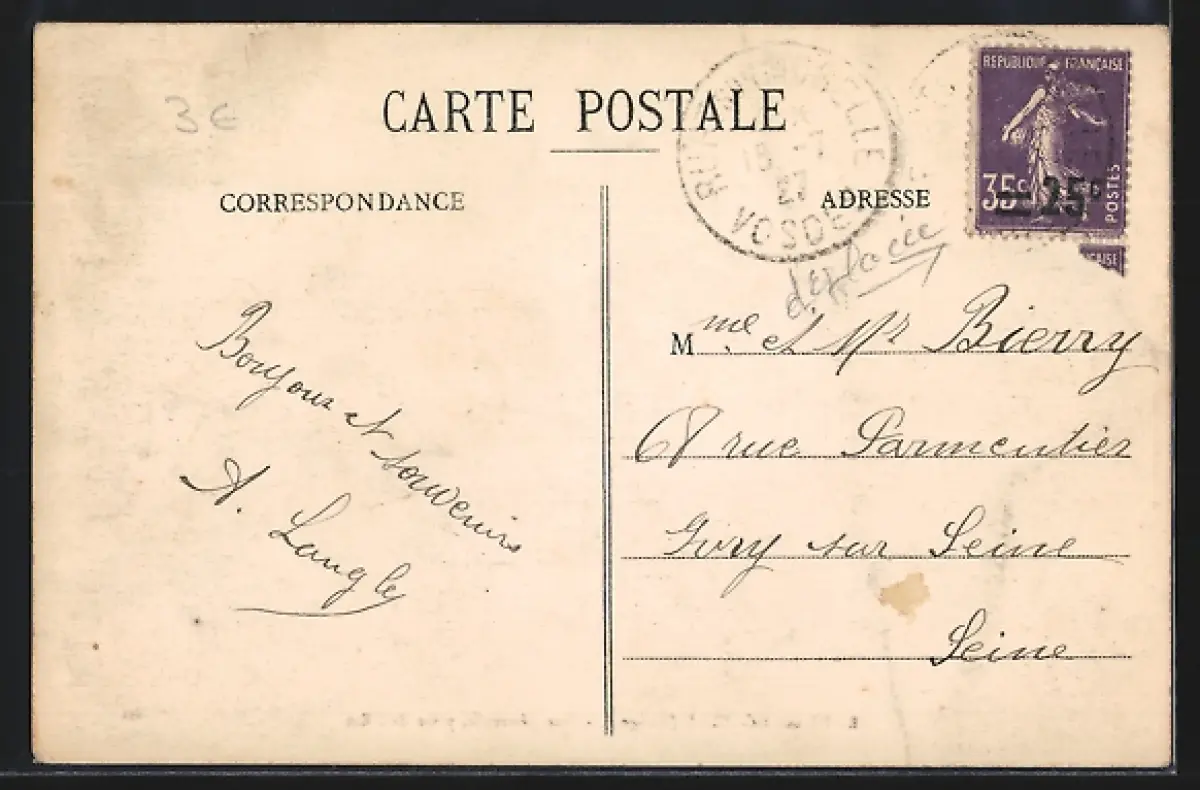 3€
CARTE POSTALE
CORRESPONDANCE
ADRESSE
REPUBLIQUE FRANÇAISE
35c
=25c
POSTES
15 -7
27
VOSGES
Bonjour et souvenirs
A. Langley
Mme et Mr Bierry
68 rue Parmentier
Ivry sur Seine
Seine